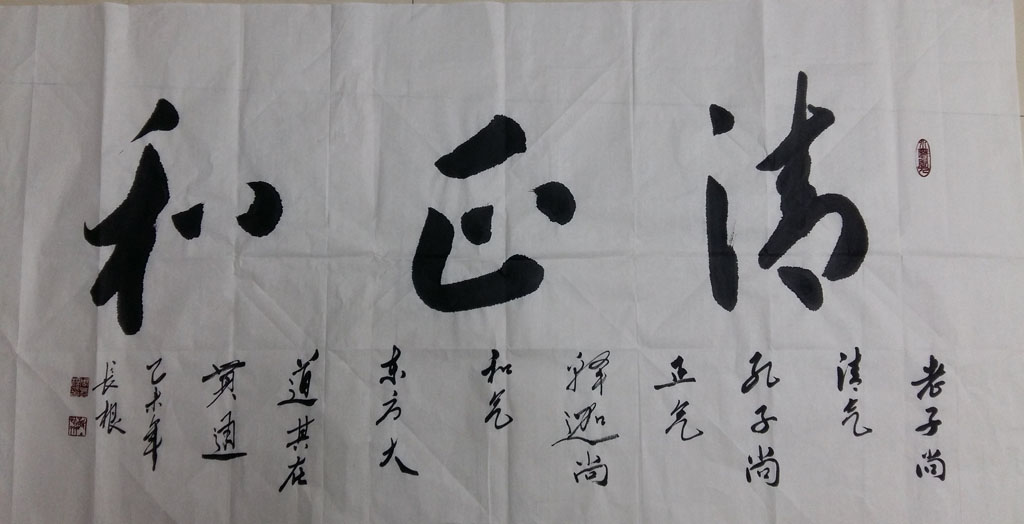 清正和
老子尚
清气
孔子尚
正气
释迦尚
和气
东方大
道其在
贯通
乙未年
长根